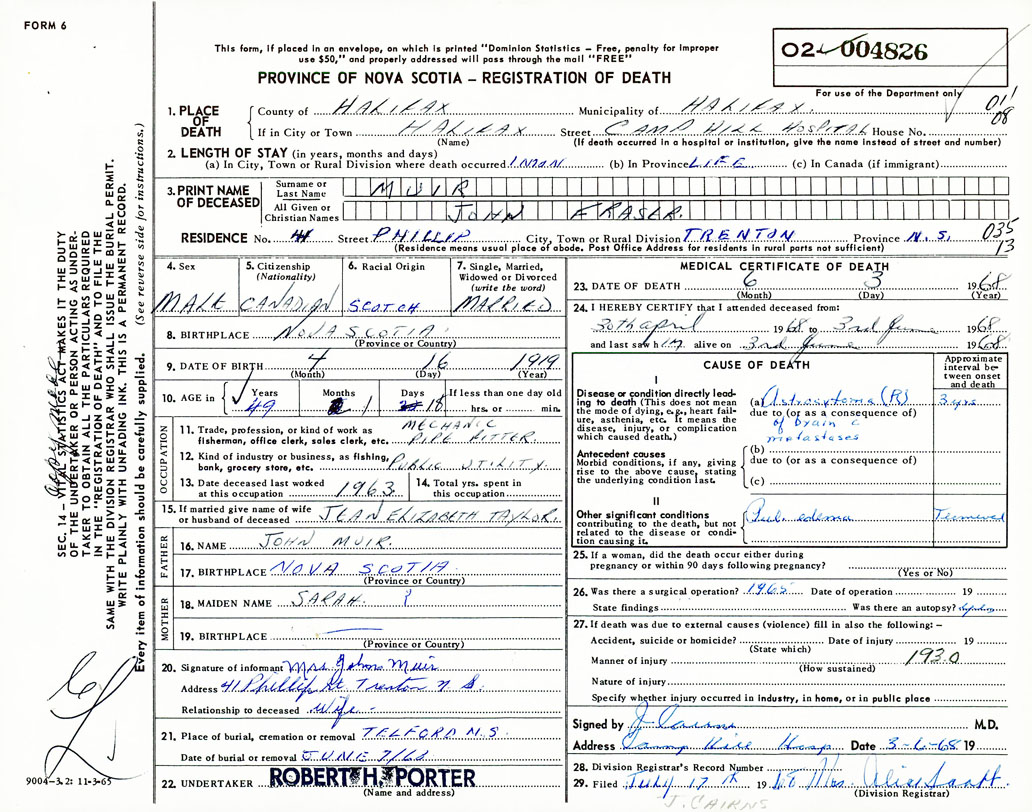 FORM 6
This form, if placed in an envelope, on which is printed "Dominion Statistics – Free, penalty for improper
use $50," and properly addressed will pass through the mail "FREE"
PROVINCE OF NOVA SCOTIA – REGISTRATION OF DEATH
02- 004826
For use of the Department only
011
08
1. PLACE OF DEATH
County of HALIFAX Municipality of HALIFAX.
If in City or Town HALIFAX Street CAMP HILL HOSPITAL House No.
(Name) (If death occurred in a hospital or institution, give the name instead of street and number)
2. LENGTH OF STAY (in years, months and days)
(a) In City, Town or Rural Division where death occurred 1 MON (b) In Province LIFE (c) In Canada (if immigrant)
3. PRINT NAME OF DECEASED
Surname or Last Name MUIR
All Given or Christian Names JOHN FRASER.
RESIDENCE No. 41 Street PHILLIP City, Town or Rural Division TRENTON Province N.S.
035
13
(Residence means usual place of abode. Post Office Address for residents in rural parts not sufficient)
4. Sex MALE
5. Citizenship (Nationality) CANADIAN
6. Racial Origin SCOTCH
7. Single, Married, Widowed or Divorced (write the word) MARRIED
8. BIRTHPLACE NOVA SCOTIA
(Province or Country)
9. DATE OF BIRTH 4 16 1919
(Month) (Day) (Year)
10. AGE in Years 49 Months 1 Days 18 If less than one day old hrs. or min.
OCCUPATION
11. Trade, profession, or kind of work as fisherman, office clerk, sales clerk, etc. MECHANIC PIPE FITTER.
12. Kind of industry or business, as fishing, bank, grocery store, etc. PUBLIC UTILITY
13. Date deceased last worked at this occupation 1963
14. Total yrs. spent in this occupation
15. If married give name of wife or husband of deceased JEAN ELIZABETH TAYLOR.
FATHER
16. NAME JOHN MUIR.
17. BIRTHPLACE NOVA SCOTIA
(Province or Country)
MOTHER
18. MAIDEN NAME SARAH. ?
19. BIRTHPLACE
(Province or Country)
20. Signature of informant Mrs Johns Muir
Address 41 Phillip St. Trenton N S.
Relationship to deceased wife
21. Place of burial, cremation or removal TELFORD N.S.
Date of burial or removal JUNE 7/68
22. UNDERTAKER ROBERT H. PORTER
(Name and address)
9004-3.2: 11-3-65
MEDICAL CERTIFICATE OF DEATH
23. DATE OF DEATH 6 3 1968
(Month) (Day) (Year)
24. I HEREBY CERTIFY that I attended deceased from:
30th april 1968 to 3rd June 1968
and last saw him alive on 3rd June 1968
CAUSE OF DEATH
Approximate interval between onset and death
I
Disease or condition directly leading to death (This does not mean the mode of dying, e.g., heart failure, asthenia, etc. it means the disease, injury, or complication which caused death.)
(a) Astrocytoma (R) 3 yrs
due to (or as a consequence of)
of brain c
metastases
Antecedent causes
Morbid conditions, if any, giving rise to the above cause, stating the underlying condition last.
(b)
due to (or as a consequence of)
(c)
II
Other significant conditions contributing to the death, but not related to the disease or condition causing it.
Pul. edema Terminal
25. If a woman, did the death occur either during pregnancy or within 90 days following pregnancy?
(Yes or No)
26. Was there a surgical operation? 1965 Date of operation 19
State findings Was there an autopsy?
27. If death was due to external causes (violence) fill in also the following: –
Accident, suicide or homicide? Date of injury 19
(State which)
Manner of injury 1930
(How sustained)
Nature of injury
Specify whether injury occurred in industry, in home, or in public place
Signed by J. Cairns M.D.
Address Camp Hill Hosp Date 3-6-68 19
28. Division Registrar's Record Number
29. Filed July 17th 19 68 Mrs. Alice Scott
(Division Registrar)
J. CAIRNS
SEC. 14 – VITAL STATISTICS ACT MAKES IT THE DUTY
OF THE UNDERTAKER OR PERSON ACTING AS UNDER-
TAKER TO OBTAIN ALL THE PARTICULARS REQUIRED
IN THE "REGISTRATION OF DEATH" AND TO FILE THE
SAME WITH THE DIVISION REGISTRAR WHO SHALL ISSUE THE BURIAL PERMIT.
WRITE PLAINLY WITH UNFADING INK. THIS IS A PERMANENT RECORD.
Every item of information should be carefully supplied. (See reverse side for instructions.)